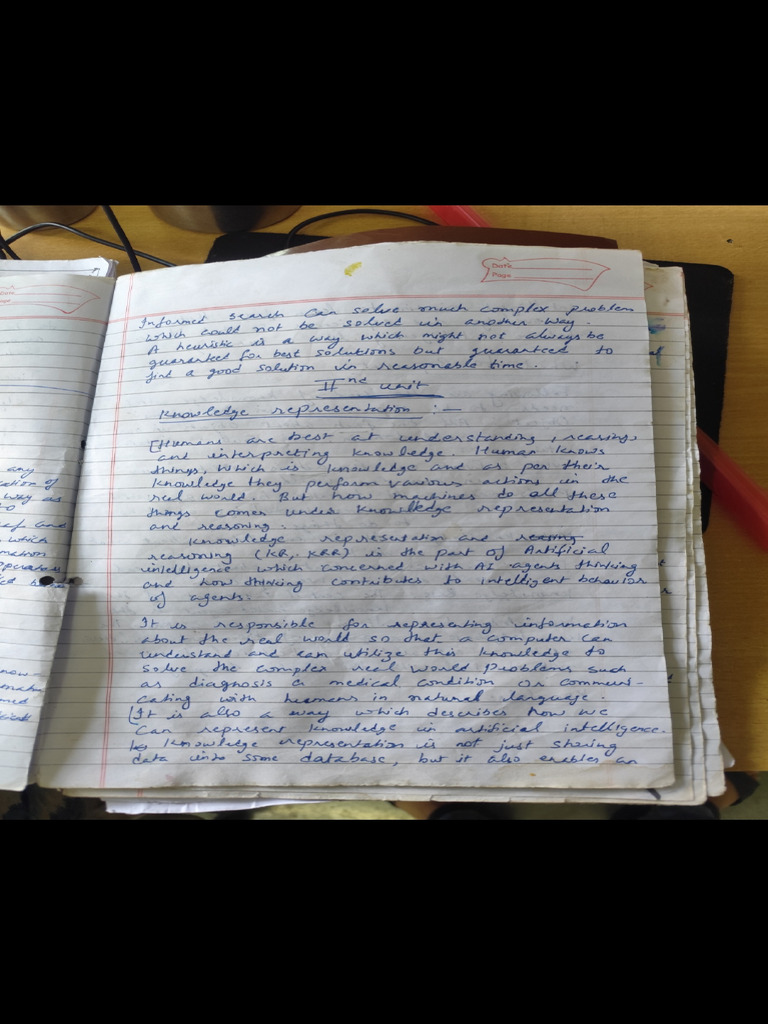 Date
Page
Informed search can solve much complex problem
which could not be solved in another way.
A heuristic is a way which might not always be
guaranteed for best solutions but guaranteed to
find a good solution in reasonable time.
IInd unit
Knowledge representation :-
[Humans are best at understanding, reasoning
and interpreting knowledge. Human knows
things, which is knowledge and as per their
knowledge they perform various actions in the
real world. But how machines do all these
things comes under knowledge representation
and reasoning.
Knowledge representation and
reasoning (KR, KRR) is the part of Artificial
intelligence which concerned with AI agents thinking
and how thinking contributes to intelligent behavior
of agents.
It is responsible for representing information
about the real world so that a computer can
understand and can utilize this knowledge to
solve the complex real world problems such
as diagnosis a medical condition or communi-
cating with humans in natural language.
[It is also a way which describes how we
can represent knowledge in artificial intelligence.
Knowledge representation is not just sharing
data into some database, but it also enables an
any
way as
and
which